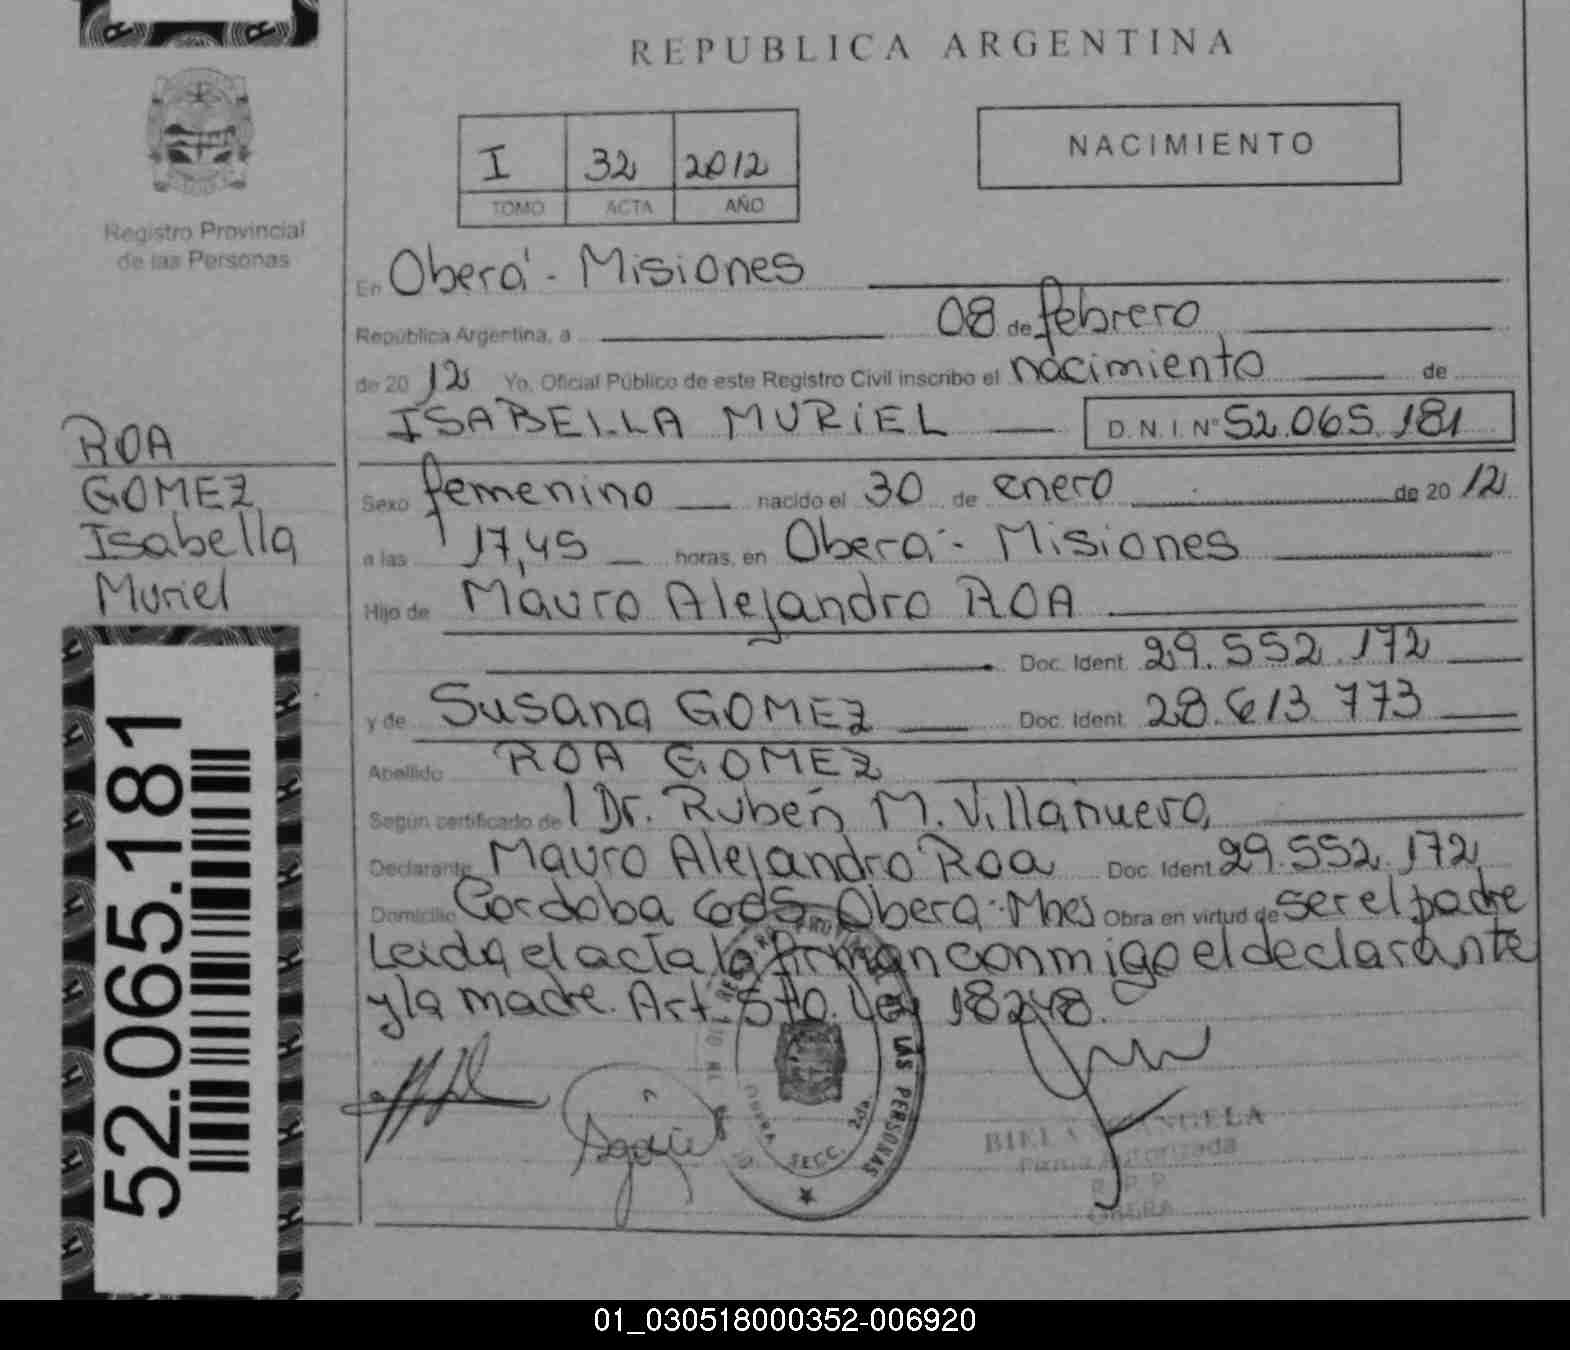 REPUBLICA ARGENTINA
Registro Provincial
de las Personas
I 32 2012
TOMO ACTA AÑO
NACIMIENTO
En Oberá - Misiones
República Argentina, a 08 de febrero
de 20 12 Yo, Oficial Público de este Registro Civil inscribo el nacimiento de
ISABELLA MURIEL D.N.I. Nº 52.065.181
ROA
GOMEZ
Isabella
Muriel
Sexo femenino nacido el 30 de enero de 20 12
a las 17,45 horas, en Oberá - Misiones
Hijo de Mauro Alejandro ROA
Doc. Ident. 29.552.172
y de Susana GOMEZ Doc. Ident. 28.613.773
Apellido ROA GOMEZ
Según certificado de l Dr. Rubén M. Villanueva
Declarante Mauro Alejandro Roa Doc. Ident. 29.552.172
Domicilio Cordoba Obera - Mnes Obra en virtud de ser el padre
Leida el acta la firman conmigo el declarante
y la madre. Art. 5to. Ley 18248.
LAS PERSONAS
SECC. 2da.
OBERA
ANGELA
Firma Autorizada
R.P.P.
OBERA
52.065.181
01_030518000352-006920